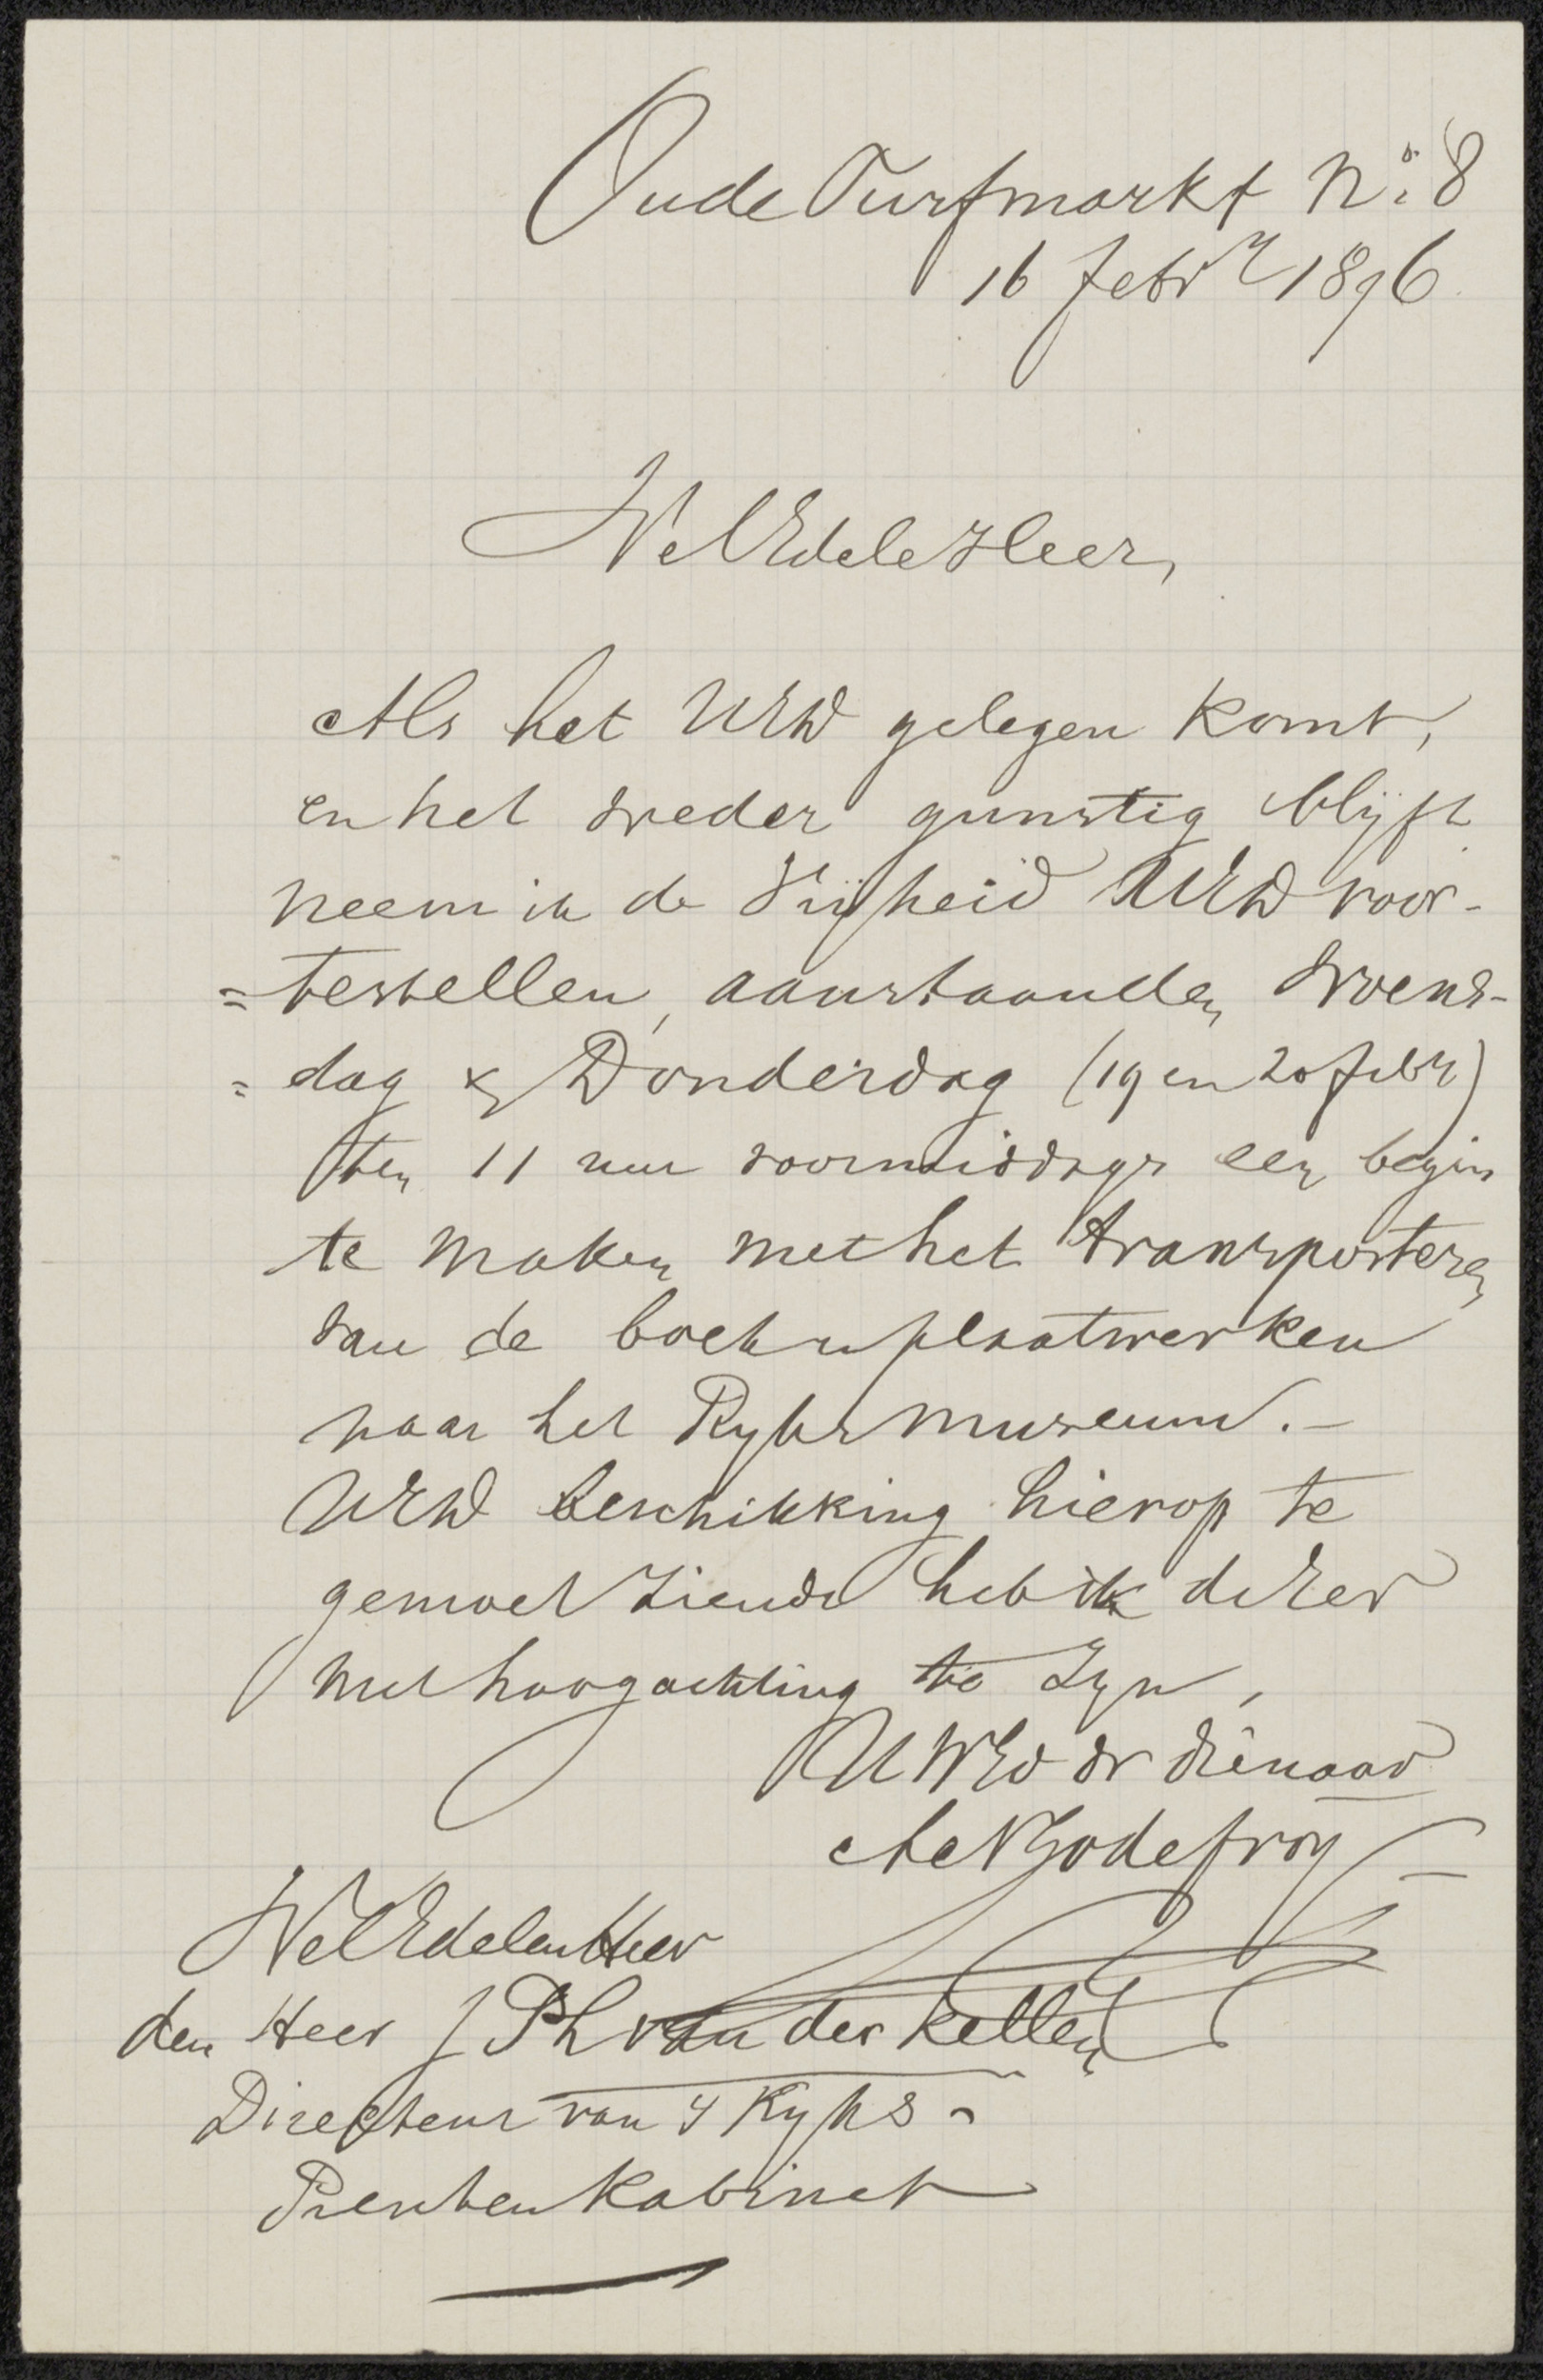 Oude Turfmarkt No: 8
16 Febr 1896
WelEdele Heer,
Als het UEW gelegen komt,
en het weder gunstig blijft
neem ik de vrijheid UEW voor-
=testellen, aanstaanden Woens-
=dag & Donderdag (19 en 20 Febr)
ten 11 uur voormiddags een begin
te maken met het transporteren
van de boek en plaatwerken
naar het Ryks museum. -
UEW beschikking hierop te
gemoet ziende heb ik de Eer
met hoogachting te Zyn,
UWEd dr dienaar
A de V Godefroy
WelEdelen Heer
den Heer J Ph van der Kellen
Directeur van 's Ryks -
Prentenkabinet